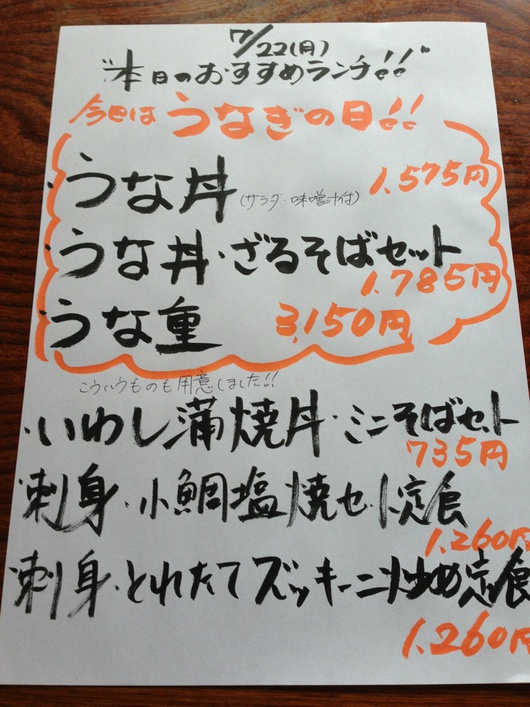 7/22(月)
"本日のおすすめランチ!!"
今日は うなぎの日!!
・うな丼 (サラダ・味噌汁付) 1,575円
・うな丼・ざるそばセット
1,785円
・うな重 3,150円
こういうものも用意しました!!
・いわし蒲焼丼・ミニそばセット
735円
刺身・小鯛塩焼セット定食
1,260円
刺身・とれたてズッキーニ炒め定食
1,260円